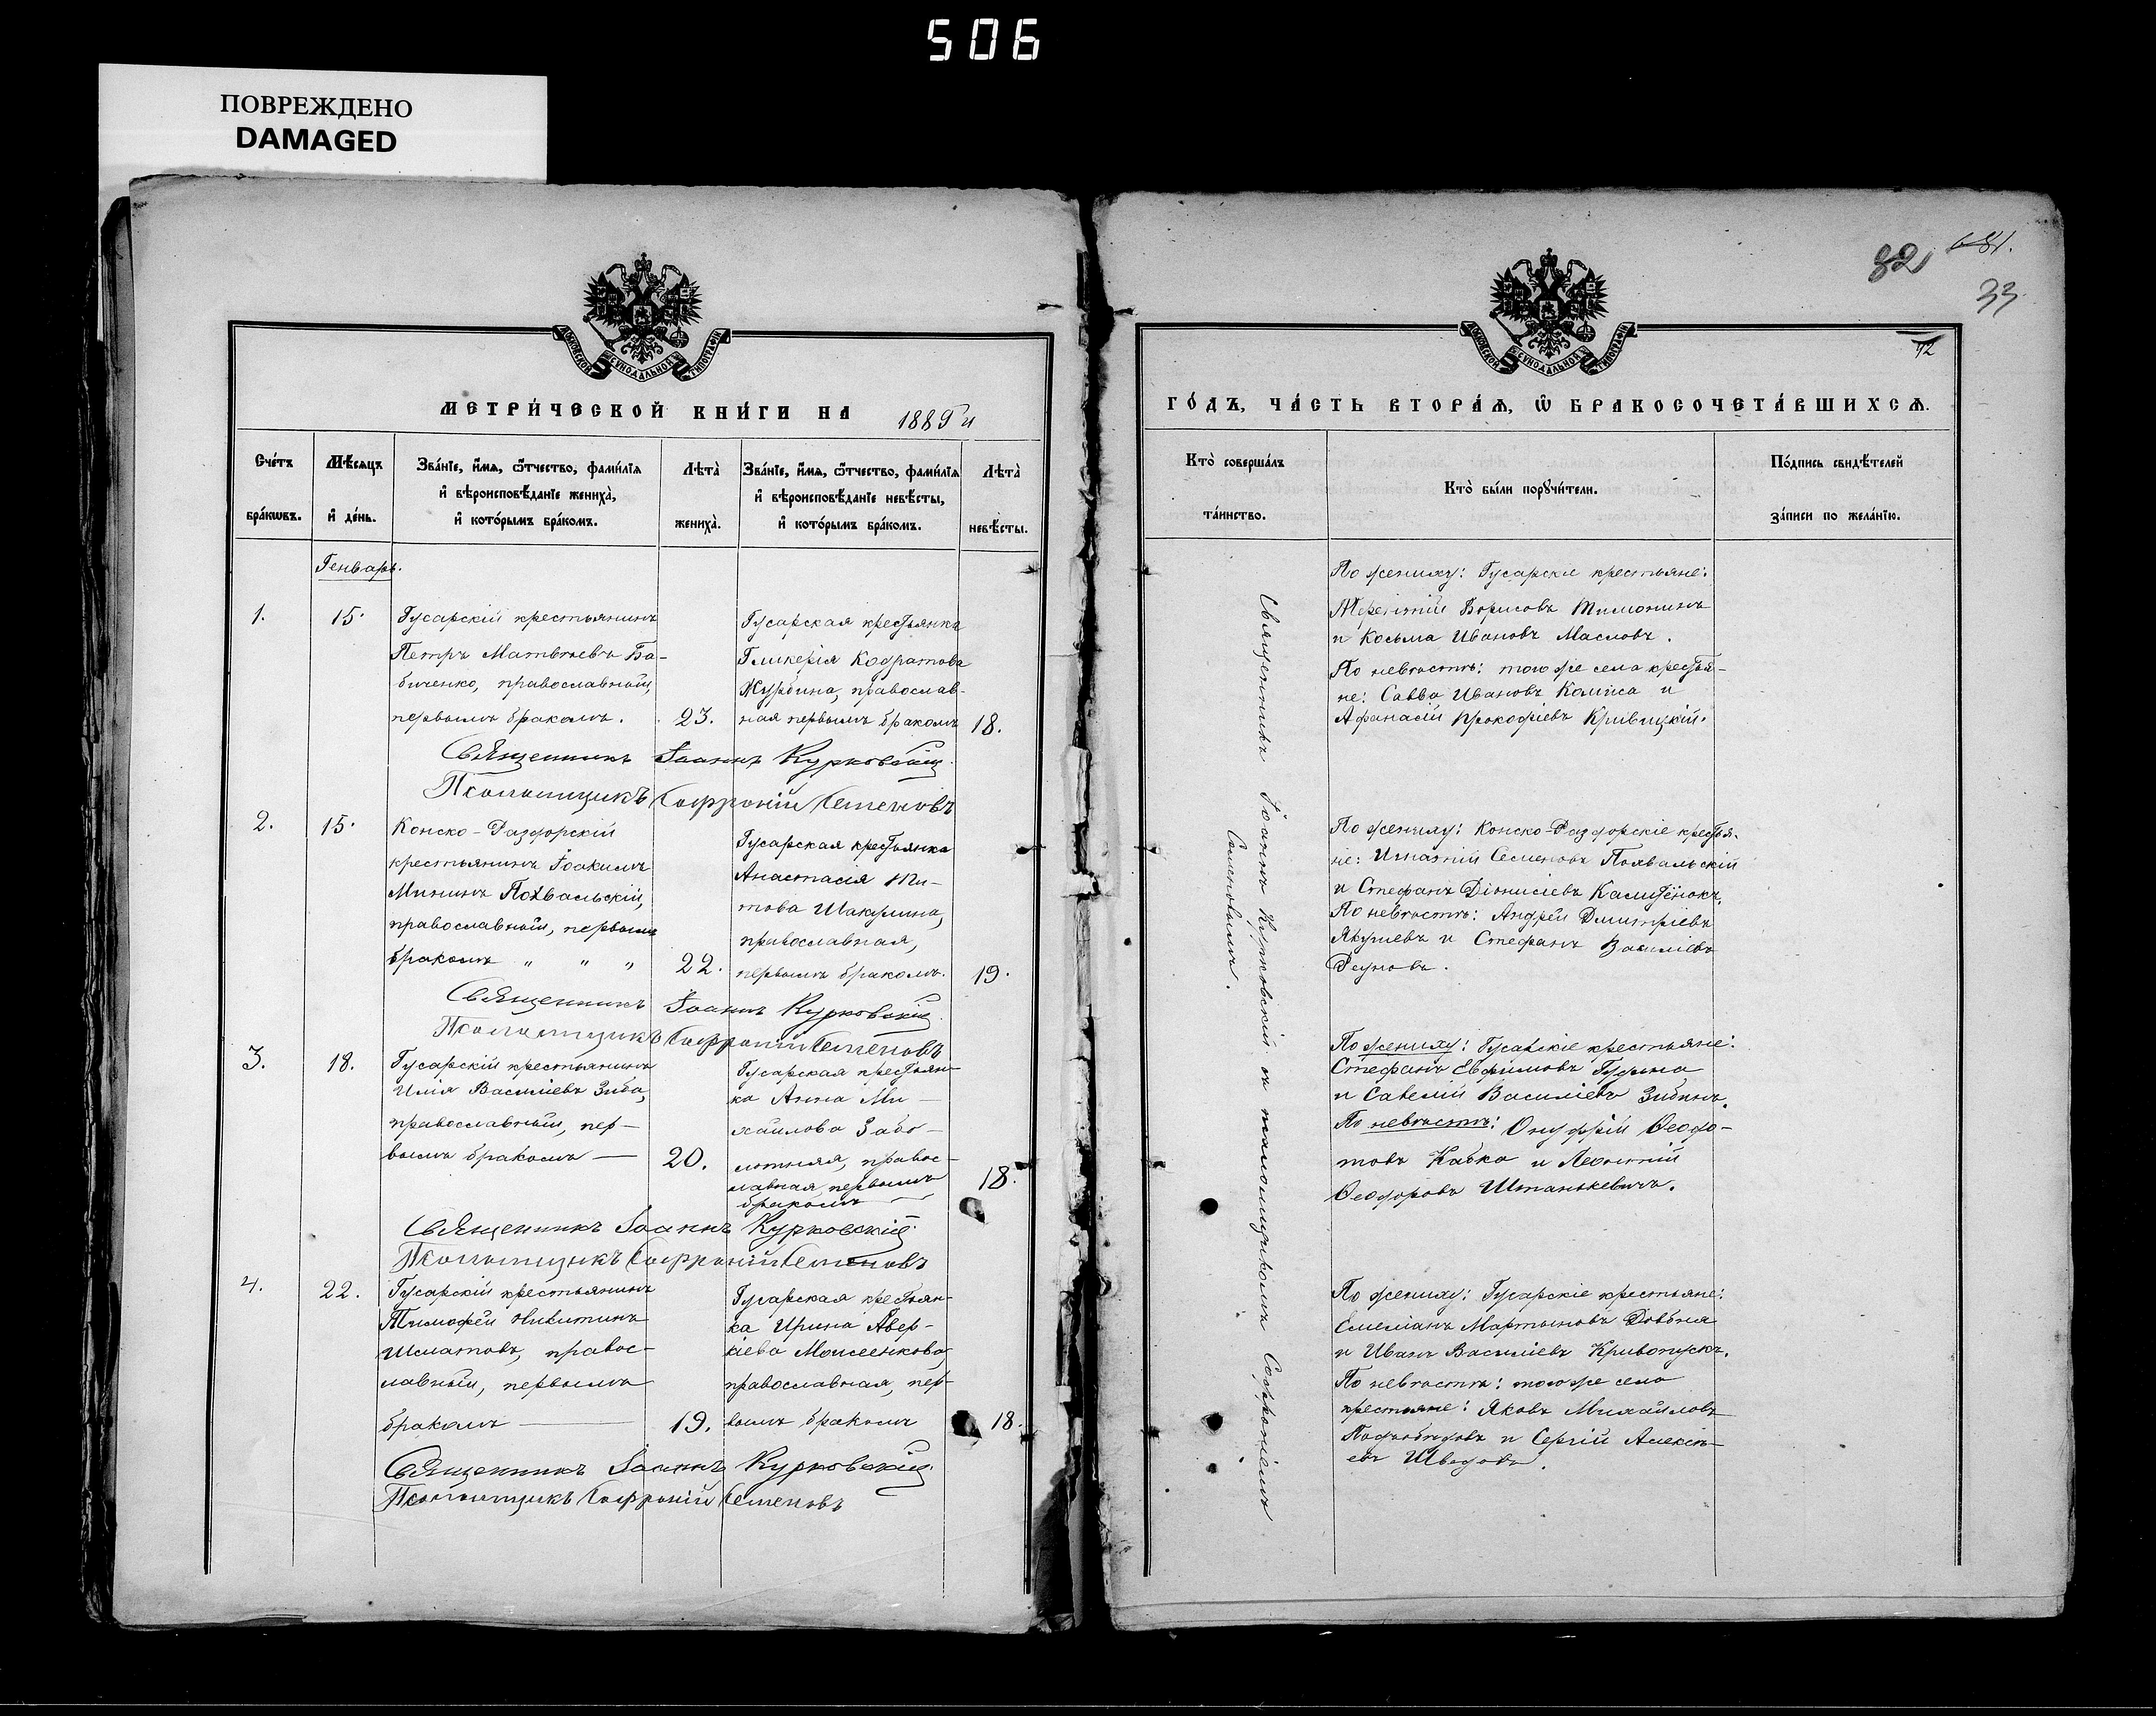 506
ПОВРЕЖДЕНО
DAMAGED
МОСКОВСКОЙ СУНОДАЛЬНОЙ ТИПОГРАФІИ
МЕТРИ́ЧЕСКОЙ КНИ́ГИ НА 1889 й
Сче́тъ бра́кωвъ.
Мѣ́сяцъ и҆ де́нь.
Зва́нїе, и҆́мѧ, ѻ҆́тчество, фами́лїѧ
и҆ вѣроисповѣ́данїе жениха̀,
и҆ кото́рымъ бра́комъ.
Лѣта̀ жениха̀.
Зва́нїе, и҆́мѧ, ѻ҆́тчество, фами́лїѧ
и҆ вѣроисповѣ́данїе невѣ́сты,
и҆ кото́рымъ бра́комъ.
Лѣта̀ невѣ́сты.
Генварь.
1.
15.
Гусарскій крестьянинъ
Петръ Матвѣевъ Ба-
биченко, православный,
первымъ бракомъ.
23.
Гусарская крестьянка
Гликерія Кодратова
Журбина, православ-
ная первымъ бракомъ
18.
Священникъ Іоаннъ Курковскій
Псаломщикъ Софроній Семеновъ
2.
15.
Конско-Раздорскій
крестьянинъ Іоакимъ
Мининъ Похвальскій,
православный, первымъ
бракомъ „ „ „
22.
Гусарская крестьянка
Анастасія Ти-
това Шакулина,
православная,
первымъ бракомъ.
19.
Священникъ Іоаннъ Курковскій
Псаломщикъ Софроній Семеновъ
3.
18.
Гусарскій крестьянинъ
Илія Василіевъ Зиба,
православный, пер-
вымъ бракомъ —
20.
Гусарская крестьян-
ка Анна Ми-
хайлова Забо-
лотняя, правос-
лавная, первымъ
бракомъ —
18.
Священникъ Іоаннъ Курковскій
Псаломщикъ Софроній Семеновъ
4.
22.
Гусарскій крестьянинъ
Тимофей Никитинъ
Шматовъ, правос-
лавный, первымъ
бракомъ —
19.
Гусарская крестьян-
ка Ирина Авер-
кіева Моисеенкова,
православная, пер-
вымъ бракомъ
18.
Священникъ Іоаннъ Курковскій
Псаломщикъ Софроній Семеновъ
82
681.
33
МОСКОВСКОЙ СУНОДАЛЬНОЙ ТИПОГРАФІИ
ГО́ДЪ, ЧА́СТЬ ВТОРА́Ѧ, Ѽ БРАКОСОЧЕТА́ВШИХСѦ.
Кто̀ соверша́лъ та́инство.
Кто̀ бы́ли порꙋчи́тели.
По́дпись свидѣ́телей за́писи по жела́нїю.
Священникъ Іоаннъ Курковскій съ псаломщикомъ Софроніемъ
Семеновымъ.
По жениху: Гусарскіе крестьяне:
Терентій Борисовъ Тимонинъ
и Косьма Ивановъ Масловъ.
По невѣстѣ: того же села крестья-
не: Савва Ивановъ Комиса и
Афанасій Прокофіевъ Кривицкій.
По жениху: Конско-Раздорскіе крестья-
не: Игнатій Семеновъ Похвальскій
и Стефанъ Діонисіевъ
По невѣстѣ: Андрей Дмитріевъ
Якушевъ и Стефанъ Василіевъ
По жениху: Гусарскіе крестьяне:
Стефанъ Евфимовъ
и Савелій Василіевъ Зибинъ.
По невѣстѣ: Онуфрій Ѳеодо-
товъ Кабка и Леонтій
Ѳеодоровъ Штанькевичъ.
По жениху: Гусарскіе крестьяне:
Емеліанъ Мартыновъ Довбня
и Иванъ Василіевъ Кривопускъ.
По невѣстѣ: того же села
крестьяне: Яковъ Михайловъ
и Сергій Алексѣ-
евъ Шведовъ.